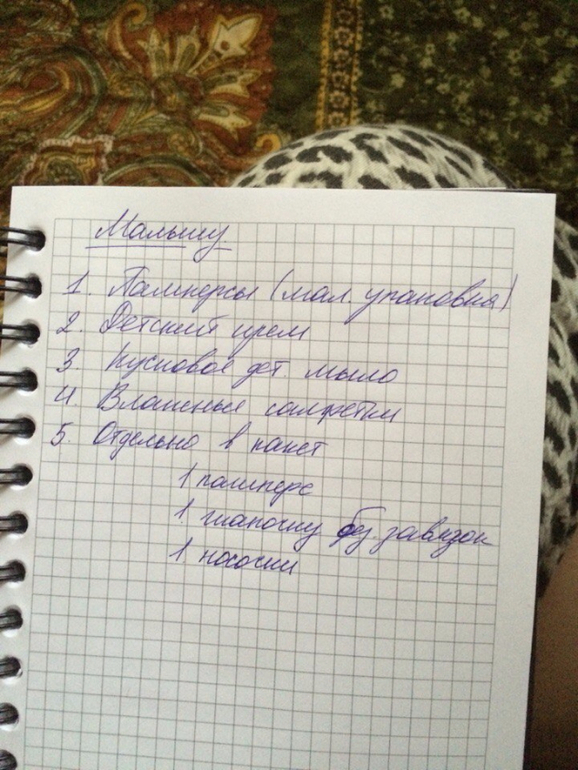 Малышу
1. Памперсы (мал. упаковка)
2. Детский крем
3. Кусковое дет. мыло
4. Влажные салфетки
5. Отдельно в пакет
1 памперс
1 шапочку без завязок
1 носочки